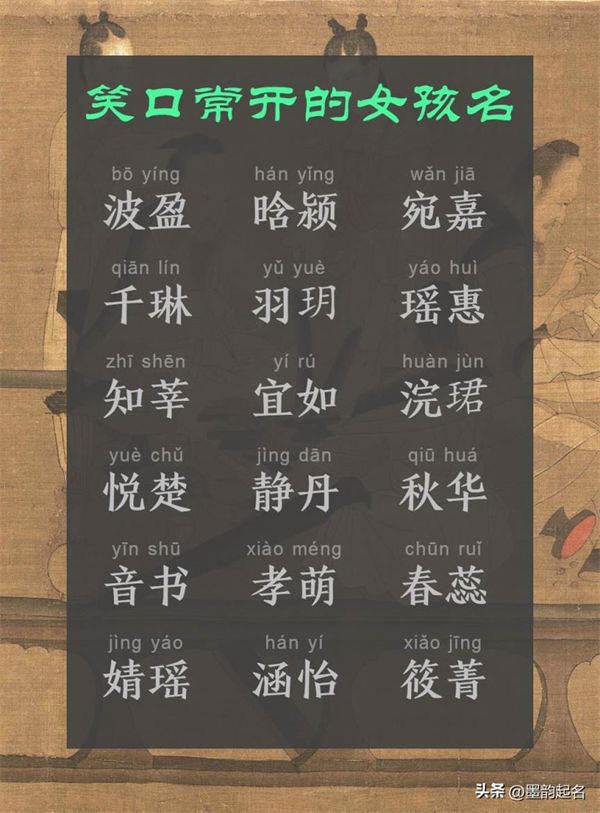 笑口常开的女孩名
bō yíng hán yǐng wǎn jiā
波盈 晗颍 宛嘉
qiān lín yǔ yuè yáo huì
千琳 羽玥 瑶惠
zhī shēn yí rú huàn jùn
知莘 宜如 浣珺
yuè chǔ jìng dān qiū huá
悦楚 静丹 秋华
yīn shū xiào méng chūn ruǐ
音书 孝萌 春蕊
jìng yáo hán yí xiǎo jīng
婧瑶 涵怡 筱菁
头条 @墨韵起名